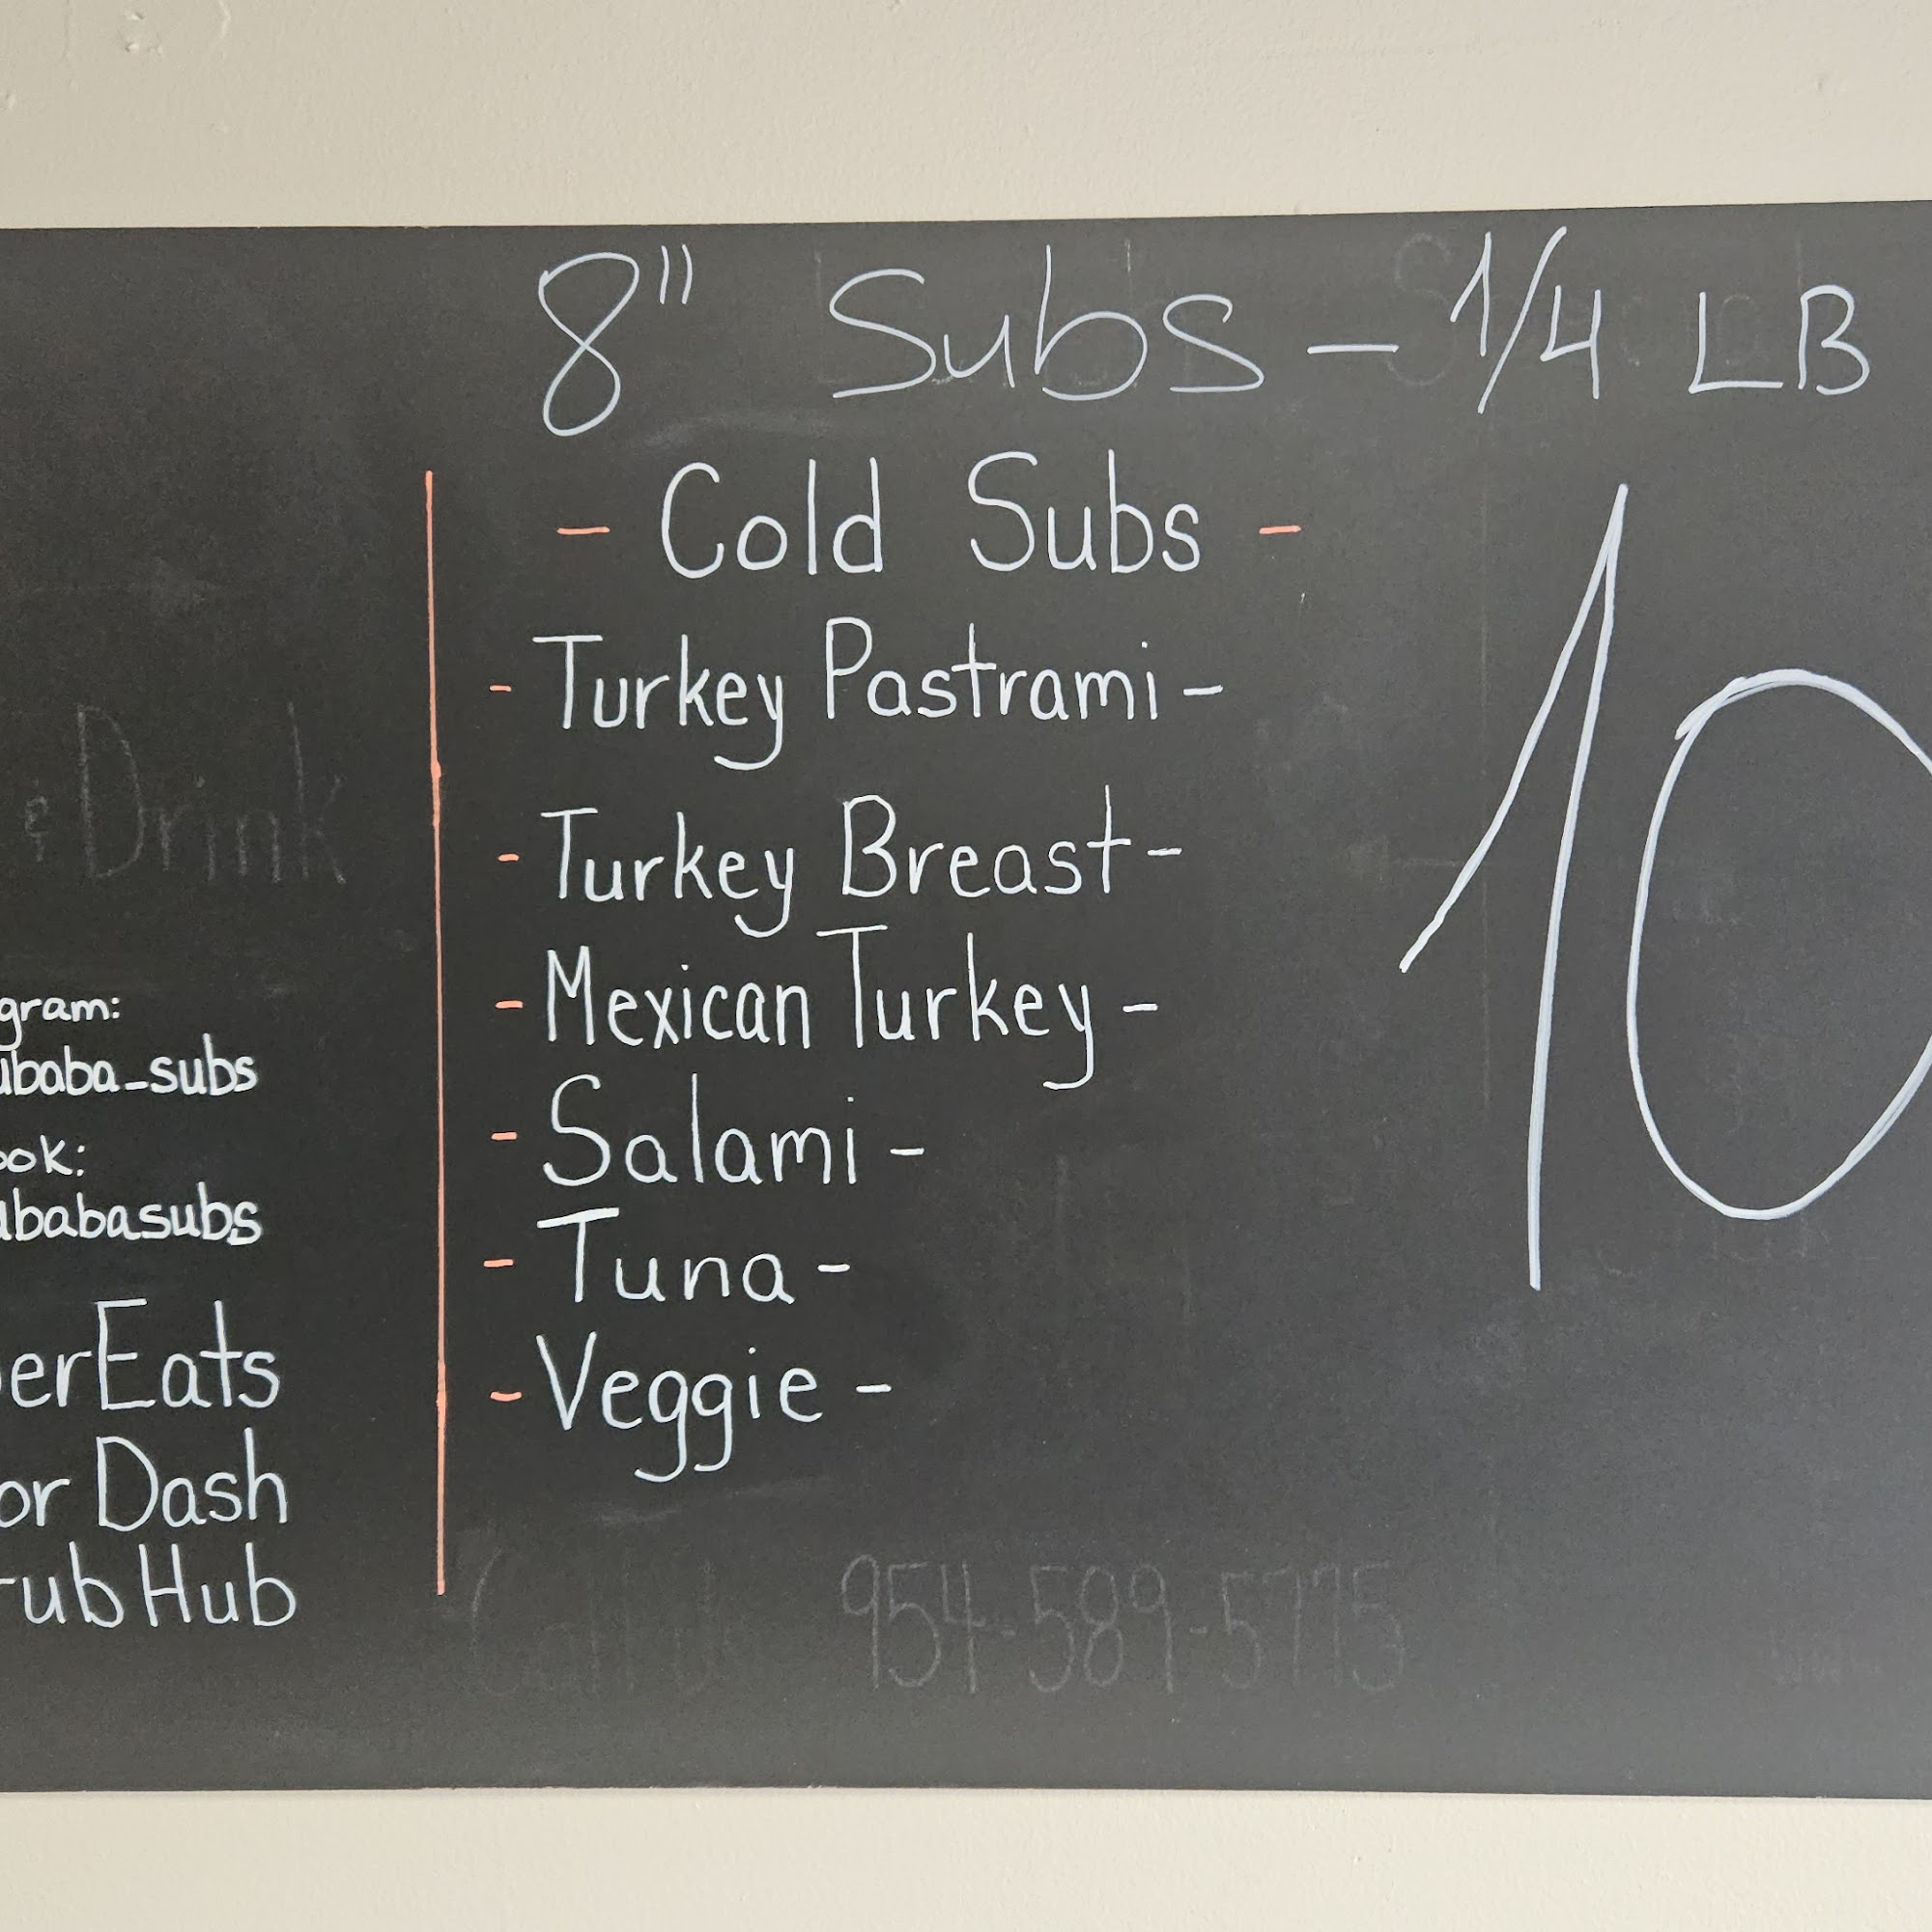 8" Subs - 1/4 LB
- Cold Subs -
- Turkey Pastrami -
- Turkey Breast -
- Mexican Turkey -
- Salami -
- Tuna -
- Veggie -
10
Call Us 954-589-5775
& Drink
gram:
ubaba_subs
ook:
ubabasubs
erEats
or Dash
rub Hub